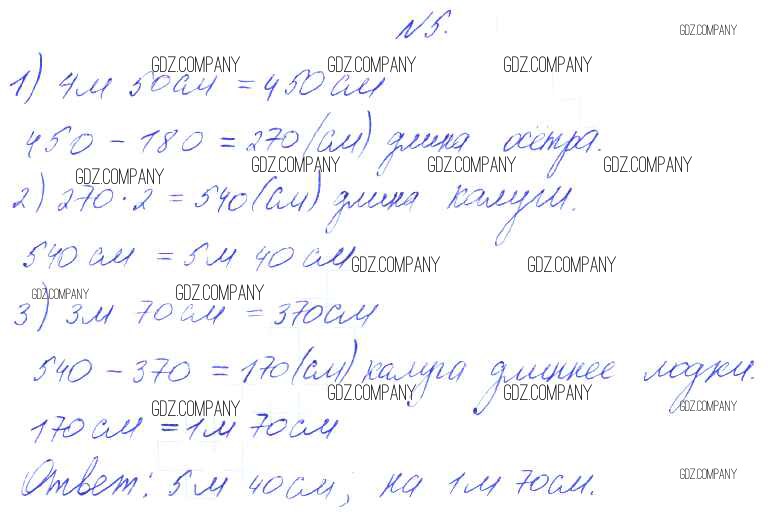 N5.
GDZ.COMPANY
GDZ.COMPANY GDZ.COMPANY GDZ.COMPANY
1) 4м 50см = 450см
450 - 180 = 270(см) длина осётра.
GDZ.COMPANY GDZ.COMPANY GDZ.COMPANY GDZ.COMPANY
2) 270·2 = 540(см) длина калуги.
540см = 5м 40см
GDZ.COMPANY GDZ.COMPANY
GDZ.COMPANY GDZ.COMPANY
3) 3м 70см = 370см
540 - 370 = 170(см) калуга длиннее лодки.
GDZ.COMPANY GDZ.COMPANY GDZ.COMPANY GDZ.COMPANY
170см = 1м 70см
GDZ.COMPANY
Ответ: 5м 40см, на 1м 70см.